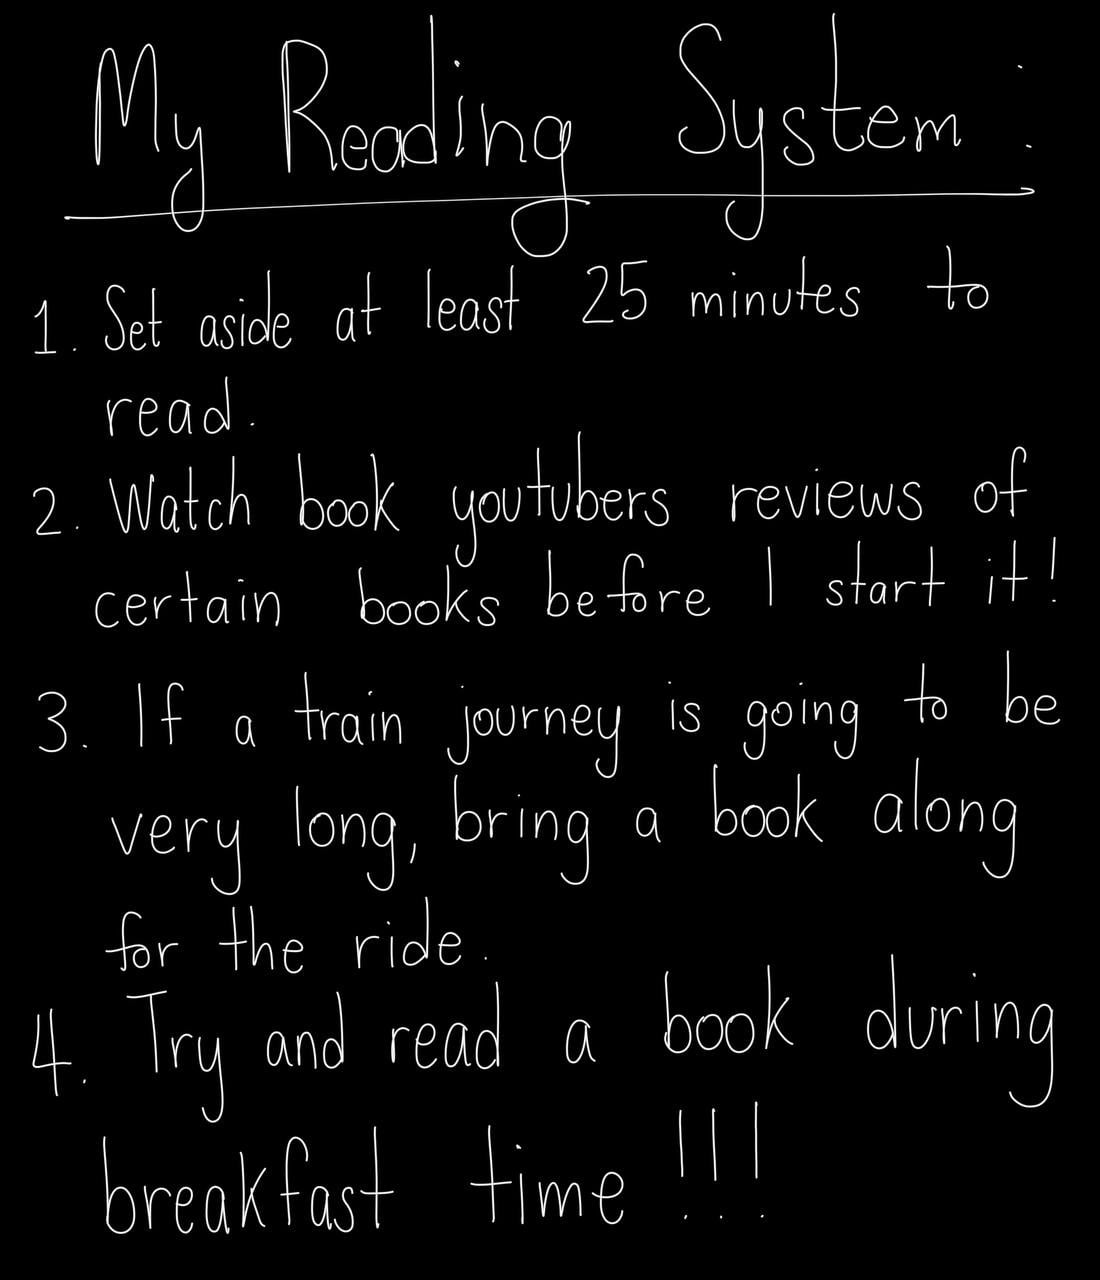 My Reading System :
1. Set aside at least 25 minutes to
read.
2. Watch book youtubers reviews of
certain books before I start it!
3. If a train journey is going to be
very long, bring a book along
for the ride.
4. Try and read a book during
breakfast time !!!